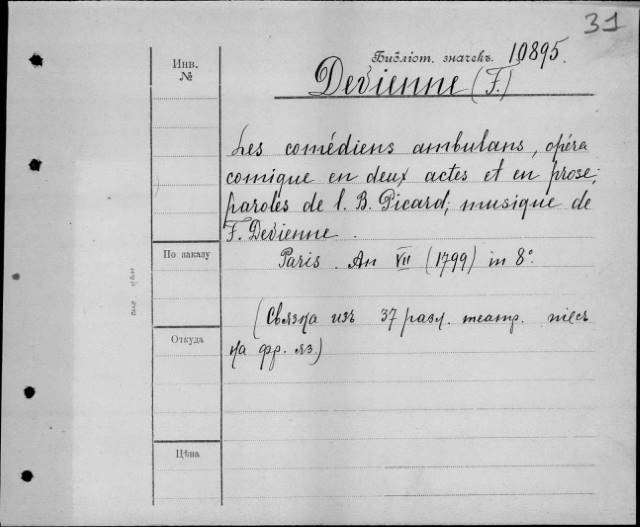 31
Инв.
№
Библіот. значекъ. 10895.
Devienne (F.)
Les comédiens ambulans, opéra
comique en deux actes et en prose;
paroles de l. B. Picard; musique de
F. Devienne.
По заказу
Paris. An VII (1799) in 8°.
(Связка изъ 37 разл. театр. пьесъ
Откуда
на фр. яз.)
Цѣна